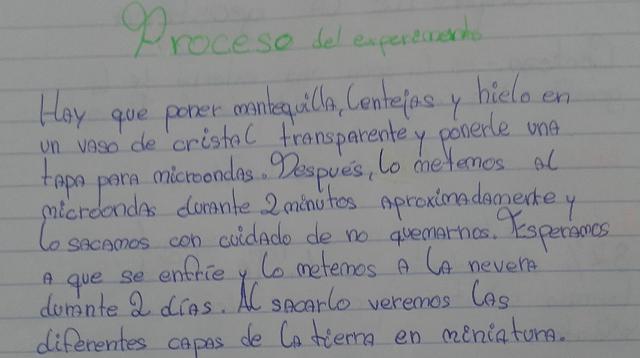 Proceso del experemento
Hay que poner mantequilla, lentejas y hielo en
un vaso de cristal transparente y ponerle una
tapa para microondas. Después, lo metemos al
microondas durante 2 minutos aproximadamente y
lo sacamos con cuidado de no quemarnos. Esperamos
a que se enfríe y lo metemos a la nevera
durante 2 días. Al sacarlo veremos las
diferentes capas de la tierra en miniatura.